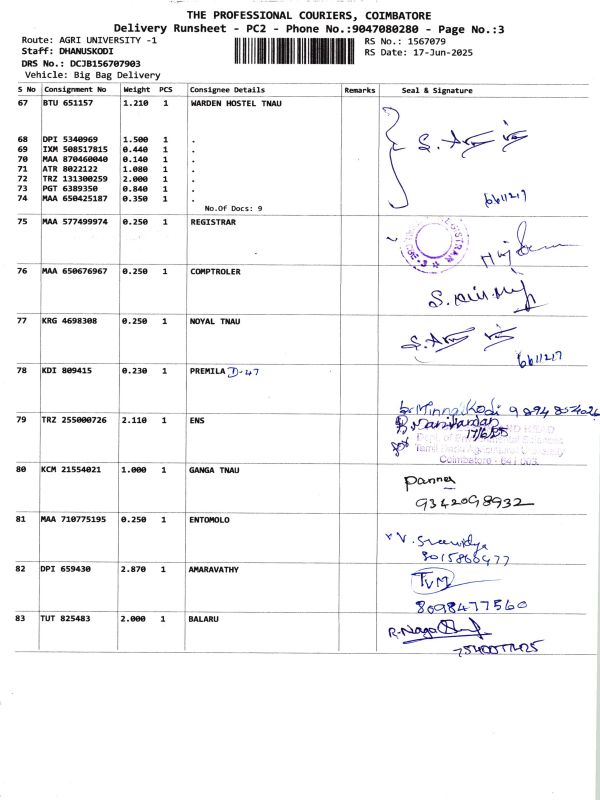 THE PROFESSIONAL COURIERS, COIMBATORE
Delivery Runsheet - PC2 - Phone No.:9047080280 - Page No.:3
Route: AGRI UNIVERSITY -1
RS No.: 1567079
Staff: DHANUSKODI
RS Date: 17-Jun-2025
DRS No.: DCJB156707903
Vehicle: Big Bag Delivery
S No Consignment No Weight PCS Consignee Details Remarks Seal & Signature
67 BTU 651157 1.210 1 WARDEN HOSTEL TNAU
68 DPI 5340969 1.500 1 .
69 IXM 508517815 0.440 1 .
70 MAA 870460040 0.140 1 .
71 ATR 8022122 1.080 1 .
72 TRZ 131300259 2.000 1 .
73 PGT 6389350 0.840 1 .
74 MAA 650425187 0.350 1 .
No.Of Docs: 9
75 MAA 577499974 0.250 1 REGISTRAR
76 MAA 650676967 0.250 1 COMPTROLER
77 KRG 4698308 0.250 1 NOYAL TNAU
78 KDI 809415 0.230 1 PREMILA D-47
79 TRZ 255000726 2.110 1 ENS
17/6/25
Coimbatore - 641 003.
80 KCM 21554021 1.000 1 GANGA TNAU
9342098932
81 MAA 710775195 0.250 1 ENTOMOLO
V. Sreevidya
82 DPI 659430 2.870 1 AMARAVATHY
TVM
8098477560
83 TUT 825483 2.000 1 BALARU